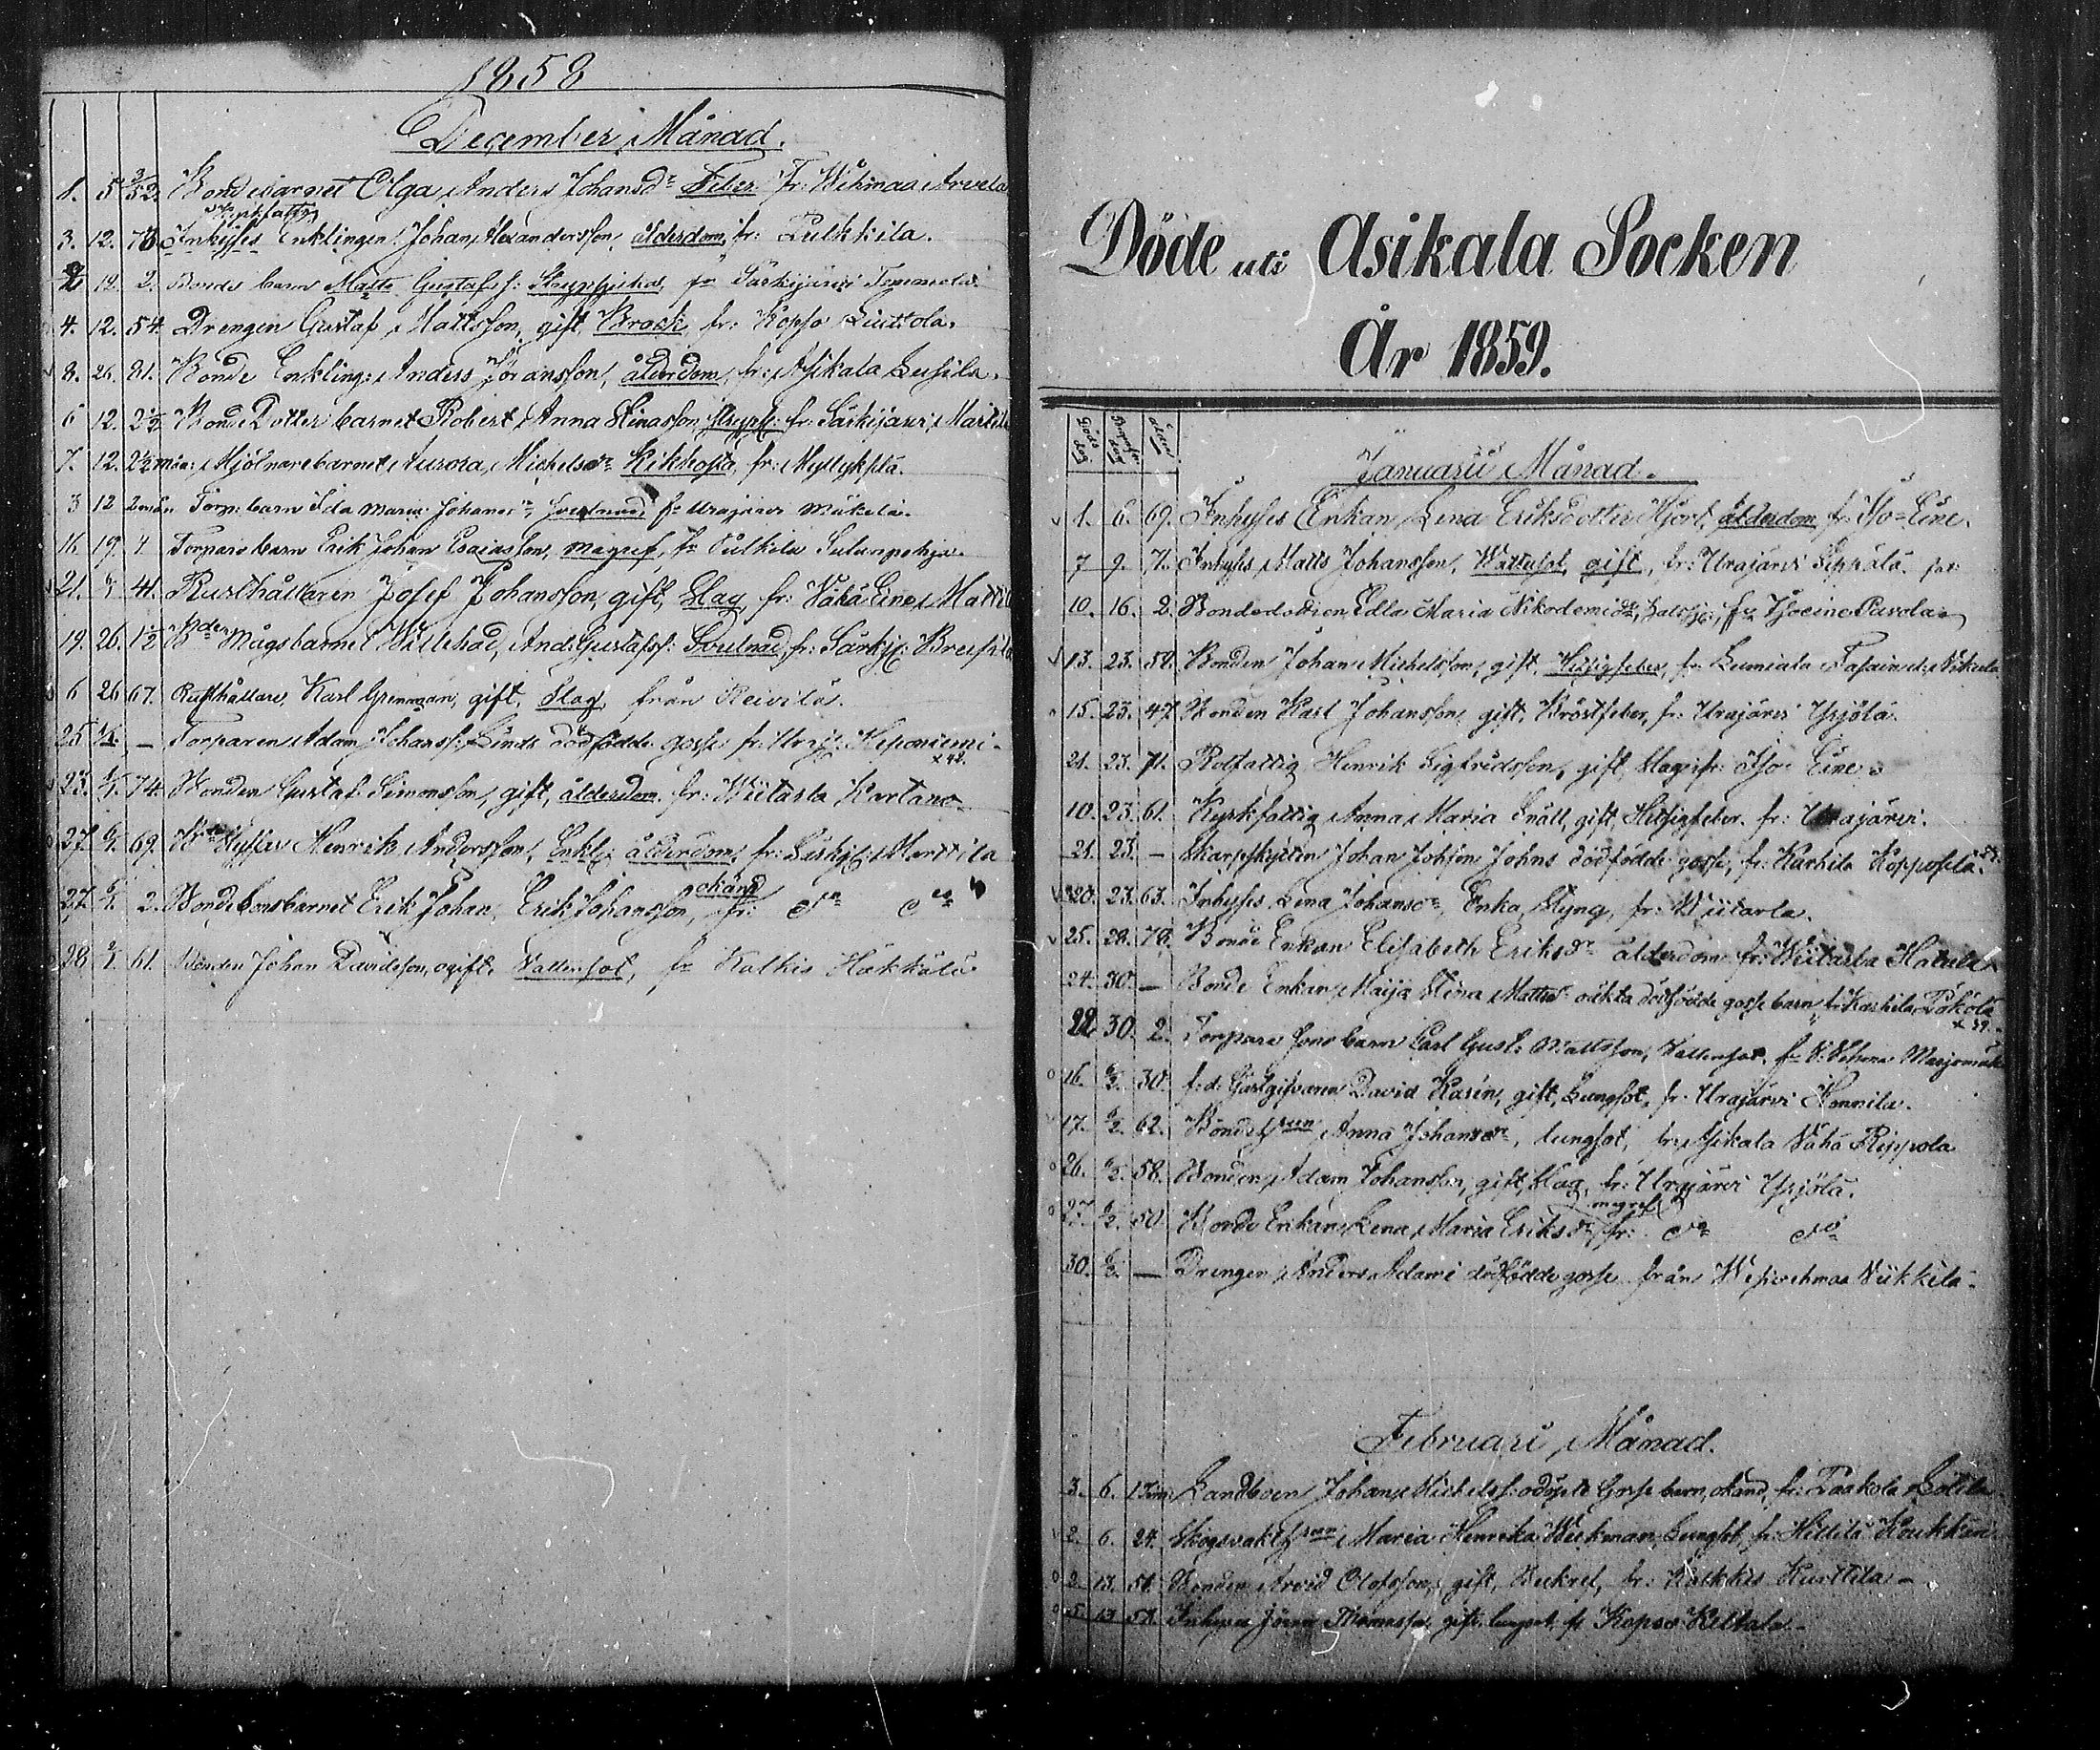 1858
December Månad.
1. 5 3/52. Bondebarnet Olga Anders Johansdr Feber fr: Wehmaa Arvela
Kyrkfattig
3. 12. 76 Inhyses Enklingen Johan Alexandersson, ålderdom, fr: Pulkkila.
2 12. 2. Bonde barn Matts Gustafss: fr Särkijärvi
4. 12. 54. Drengen Gustaf Mattsson, gift, Brock fr: Kopso Liuttola.
8. 26. 81. Bonde Enkling: Anders Göransson, ålderdom, fr: Asikala Lusila.
6 12. 2½ Bonde Dotter barnet Robert Anna Stinasson fr: Särkijärvi Marttila
7. 12. 2½ mån: Mjölnarebarnet Aurora Michelsdr Kikhosta, fr: Myllykylä.
3 12 2 mån Torp: barn Ida Maria Johansdr fr Urajärvi Mäkelä.
16 19. 4 Torpare barn Erik Johan Esaiasson, magref, fr Pulkila Salanpohja.
21. 6/1 41. Rusthållaren Josef Johansson, gift, Slag, fr: Vähä Eine Mattil
19. 26. 1½ Bden Mågsbarnet Willehad, And: Gustafss: Svulnad, fr: Särkjr:
6 26 67. Rusthållare Karl Grenman, gift, Slag, från Reivilä.
25 1/1 — Torparen Adam Johanss: Linds dödfödde gosse fr. Uraj: Heponiemi.
x 42.
23. 6/1 74. Bonden Gustaf Simonsson, gift, ålderdom, fr: Wiitaila Kartano
27. 6/1 69. Henrik Andersson, Enkl: ålderdom, fr: Särkj: Marttila
okänd
27. 6/1 2. Bondesonsbarnet Erik Johan Erik Johansson, fr: do do
28 6/1 61. Bonden Johan Davidsson, ogift, Vattusot, fr Kalkis Häkkälä
Döde uti Asikala Socken
År 1859.
Döds dag Begrafn: dag ålder
Januarii Månad.
1. 6. 69. Inhyses Enkan Lena Eriksdotter Hjort, ålderdom fr: Iso-Eine.
7 9. 71. Inhyses Matts Johansson, Wattusot, gift, fr: Urajärvi Seppälä.
10. 16. 2. Bondedottren Edla Maria Nikodemidr, fr Isoeine Pavola
13. 23. 58. Bonden Johan Michelsson, gift, Hetsigfeber, fr: Kumiala Tapani
15. 23. 47. Bonden Karl Johansson, gift, Bröstfeber, fr: Urajärvi Yrjölä.
21. 23. 71. Rotfattig Henrik Sigfridsson, gift, Slag, fr: Iso Eine.
10. 23. 61. Kyrkfattig Anna Maria Snäll, gift, Hetsigfeber. fr: Urajärvi.
21. 23. — Skarpskytten Johan Johsson Johns dödfödde gosse, fr: Karhila
20. 23. 63. Inhyses Lena Johansdr Enka, Styng, fr: Wiitaila.
25. 28. 78. Bonde Enkan Elisabeth Eriksdr ålderdom fr: Wiitaila Hatula
24. 30. — Bonde Enkan Maija Stina Mattsdr oäkta dödfödde gosse barn, fr: Karhila
x 39.
22. 30. 2. Torpare sons barn Carl Gust: Mattsson, Vattusot, fr V: Vehma Marjomäki
16. 6/2 30. f: d: Gästgifvaren David Kasén, gift, Lungsot, fr. Urajärvi Hennila.
17. 6/2. 62. Bondehrun Anna Johansdr, lungsot, fr: Asikala Vähä Rippola
26. 6/2 58. Bonden Adam Johansson, gift, Slag, fr: Urajärvi Yrjölä.
magref
27. 6/2. 50. Bonde Enkan Lena Maria Eriksdr fr: do do
30. 6/2. — Drengen Anders Adami dödfödde gosse från Wesivehmaa
Februari Månad.
3. 6. 1 tim: Landboen Johan Michelss: odöpte Gosse barn, okänd, fr:
2. 6. 24. Skogsvakthrun Maria Henrika Wickman Lungsot fr: Hillilä
2. 13. 51. Bonden Arvid Olofsson, gift, fr: Kalkkis Hurttila
5. 13 58. Inhyses Jöran Thomasson, gift, lungsot, fr Kopso Keltala